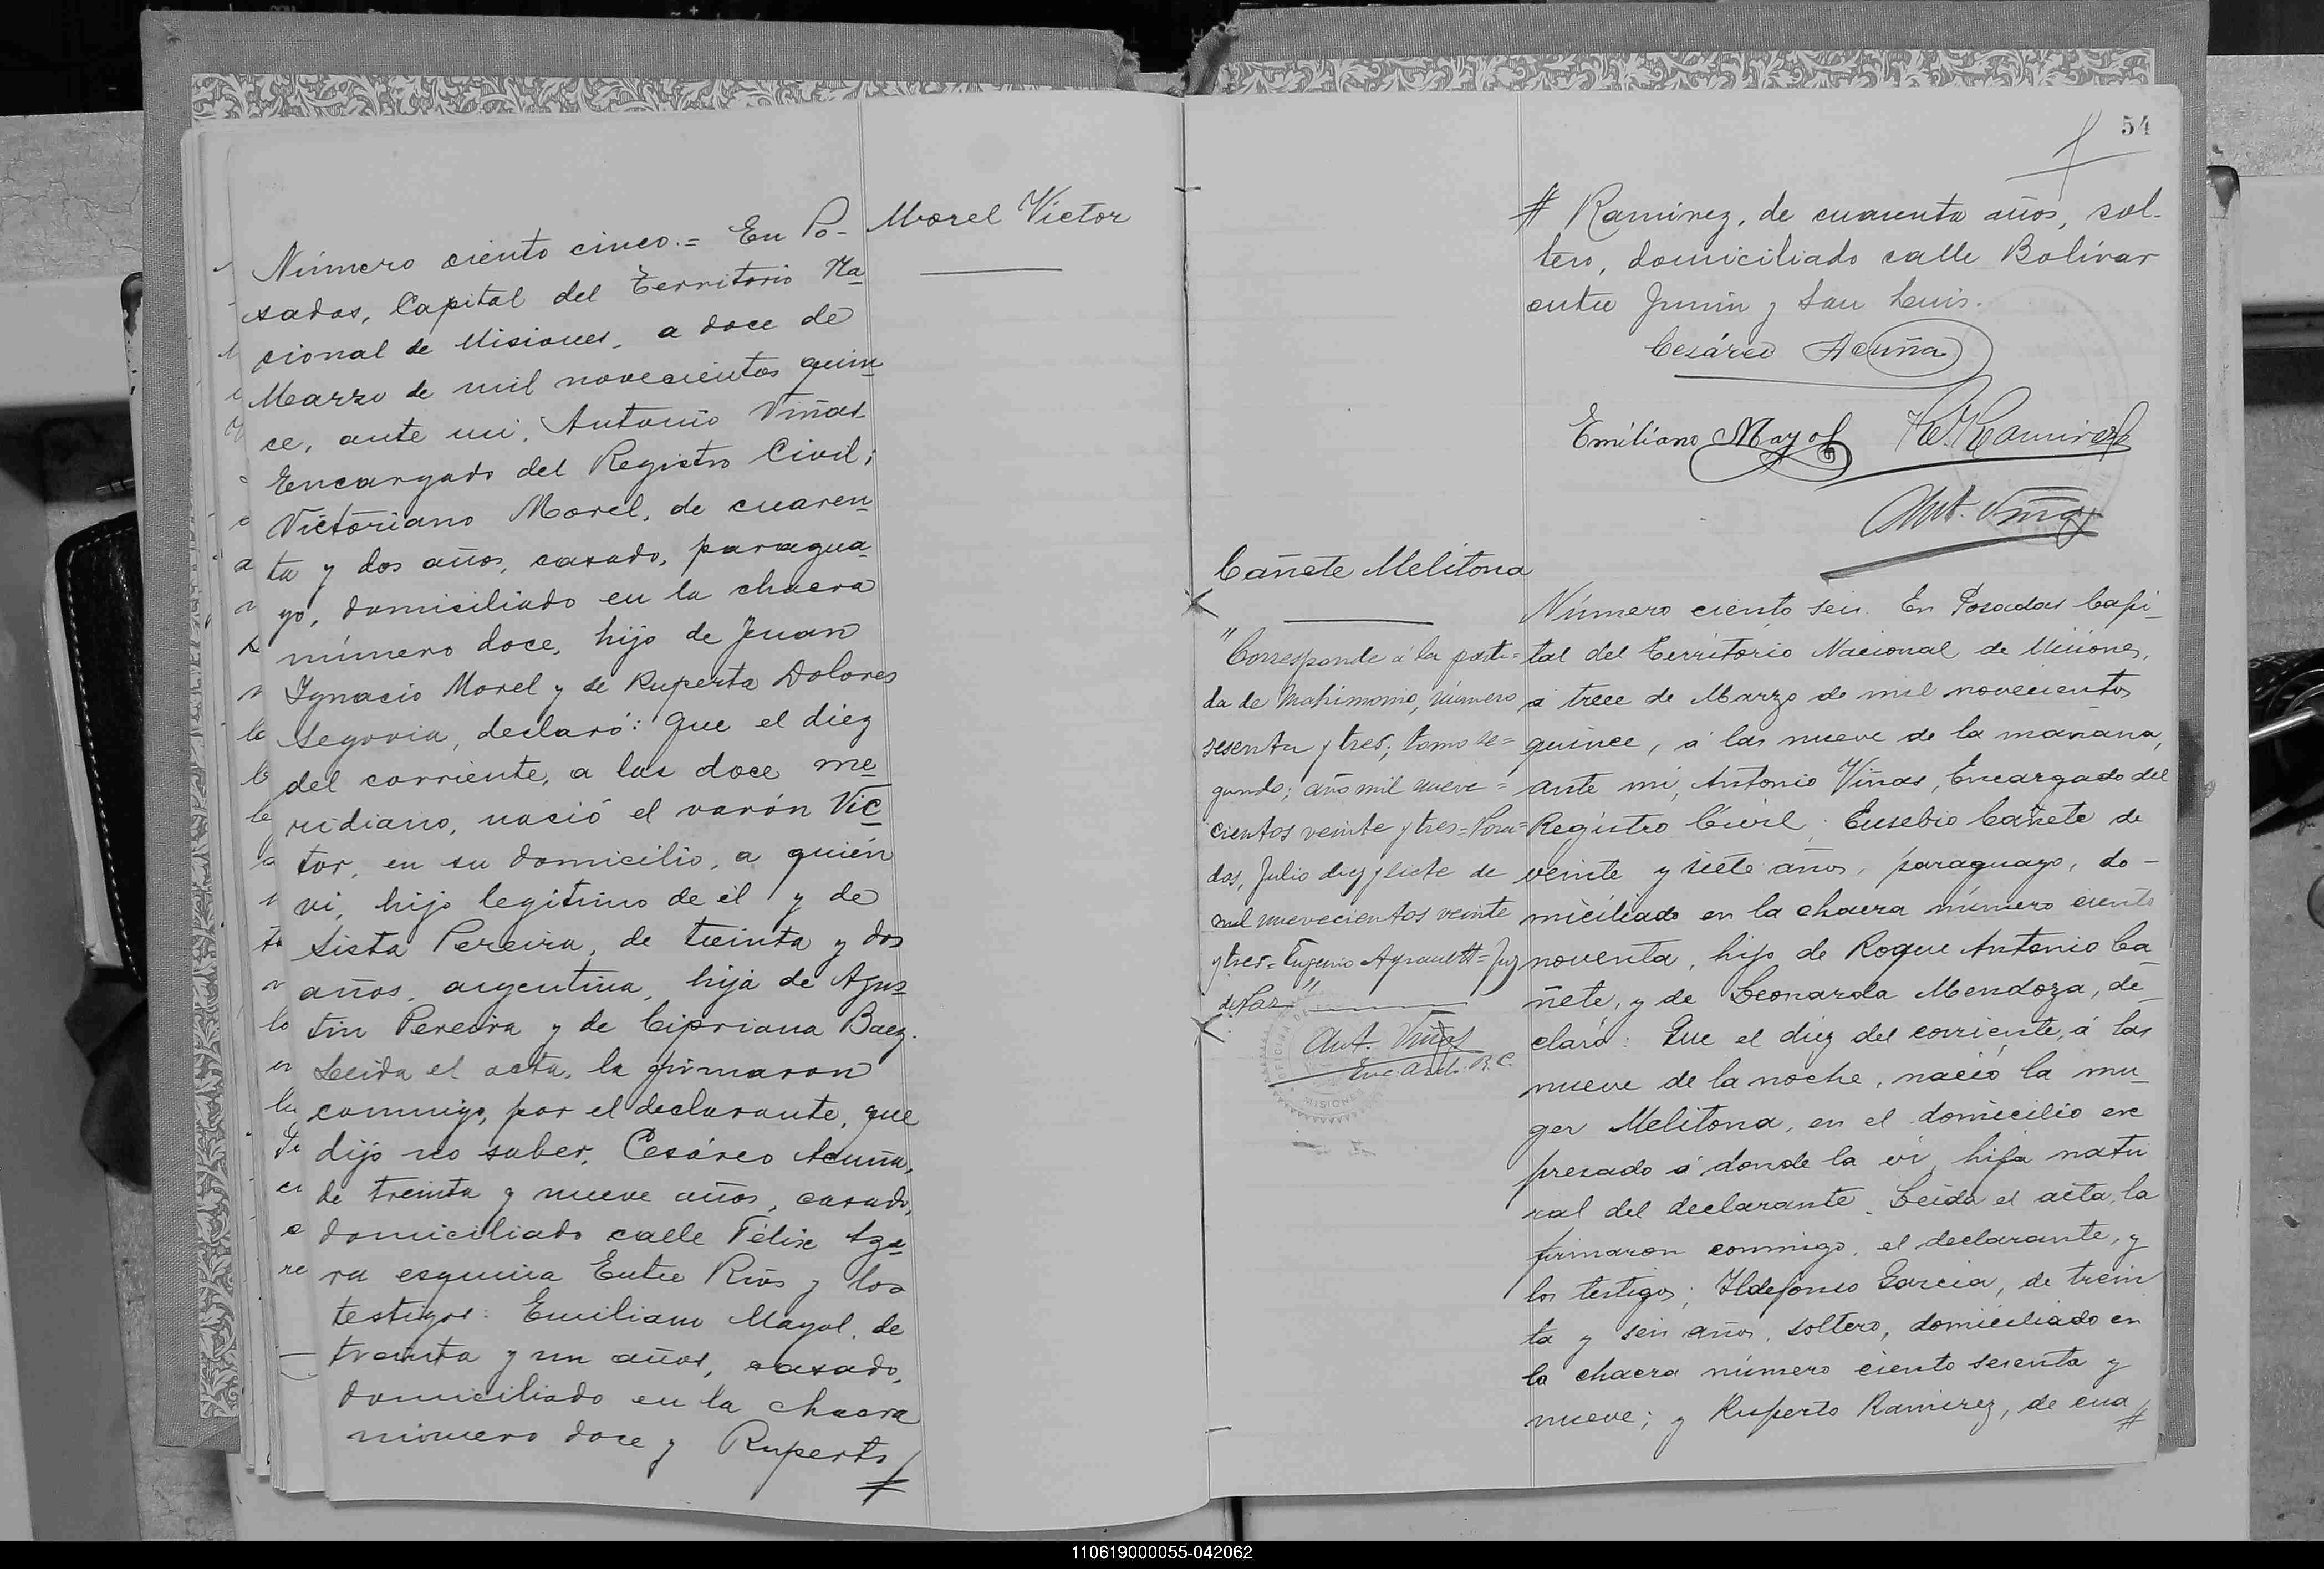 Morel Victor
Número ciento cinco.= En Po-
sadas, Capital del Territorio Na
cional de Misiones, a doce de
Marzo de mil novecientos quin
ce, ante mi, Antonio Viñas
Encargado del Registro Civil;
Victoriano Morel, de cuaren
ta y dos años, casado, paragua
yo, domiciliado en la chacra
número doce, hijo de Juan
Ignacio Morel y de Ruperta Dolores
Segovia, declaró: Que el diez
del corriente, a las doce me
ridiano, nació el varón Vic
tor, en su domicilio, a quién
vi, hijo legitimo de él y de
Sista Pereira, de treinta y dos
años, argentina, hija de Agus
tin Pereira y de Cipriana Baez.
Leida el acta, la firmaron
conmigo, por el declarante, que
dijo no saber, Cesáreo Acuña,
de treinta y nueve años, casado,
domiciliado calle Félix Aza
ra esquina Entre Rios y los
testigos: Emiliano Mayol, de
treinta y un años, casado,
domiciliado en la chacra
número doce y Ruperto
#
54
# Ramirez, de cuarenta años, sol-
tero, domiciliado calle Bolívar
entre Junin y San Luis.
Cesáreo Acuña
Emiliano Mayol R. Ramirez
Ant. Viñas
Cañete Melitona
"Corresponde á la parti=
da de Matrimonio, número
sesenta y tres; tomo se=
gundo; año mil nueve=
cientos veinte y tres= Posa=
das, Julio diez y siete de
mil nuevecientos veinte
y tres= Eugenio Ayrault= Juez
de Paz"
Ant. Viñas
Enc. R. C.
MISIONES
Número ciento seis. En Posadas Capi-
tal del Territorio Nacional de Misiones,
á trece de Marzo de mil novecientos
quince, á las nueve de la mañana,
ante mi, Antonio Viñas, Encargado del
Registro Civil; Eusebio Cañete de
veinte y siete años, paraguayo, do-
miciliado en la chacra número ciento
noventa, hijo de Roque Antonio Ca-
ñete, y de Leonarda Mendoza, de-
claró: Que el diez del corriente, á las
nueve de la noche, nació la mu-
ger Melitona, en el domicilio ex
presado á donde la vi, hija natu
ral del declarante. Leida el acta, la
firmaron conmigo, el declarante, y
los testigos; Ildefonso Garcia, de trein
ta y seis años, soltero, domiciliado en
la chacra número ciento sesenta y
nueve; y Ruperto Ramirez, de cua
#
110619000055-042062